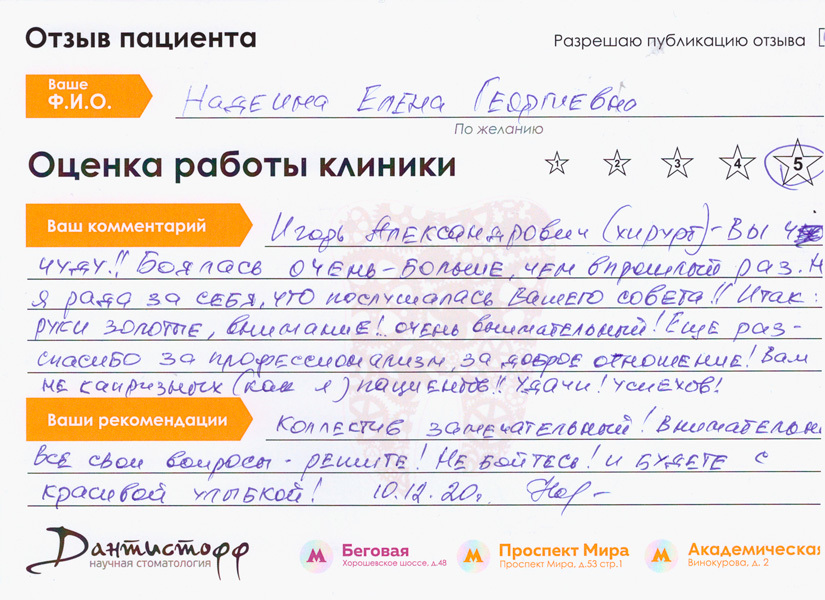 Отзыв пациента
Разрешаю публикацию отзыва
Ваше
Ф.И.О.
Надеина Елена Георгиевна
По желанию
Оценка работы клиники
1 2 3 4 5
Ваш комментарий
Игорь Александрович (хирург) - Вы
чуду!! Боялась очень - больше, чем в прошлый раз. Н
я рада за себя, что послушалась Вашего совета!! Итак:
руки золотые, внимание! очень внимательный! Еще раз -
спасибо за профессионализм, за доброе отношение! Вам
не капризных (как я) пациентов!! Удачи! Успехов!
Ваши рекомендации
Коллектив замечательный! Внимательн
все свои вопросы - решите! Не бойтесь! и будете с
красивой улыбкой! 10.12.20г.
Дантистофф
научная стоматология
Беговая
Хорошевское шоссе, д.48
Проспект Мира
Проспект Мира, д.53 стр.1
Академическая
Винокурова, д. 2